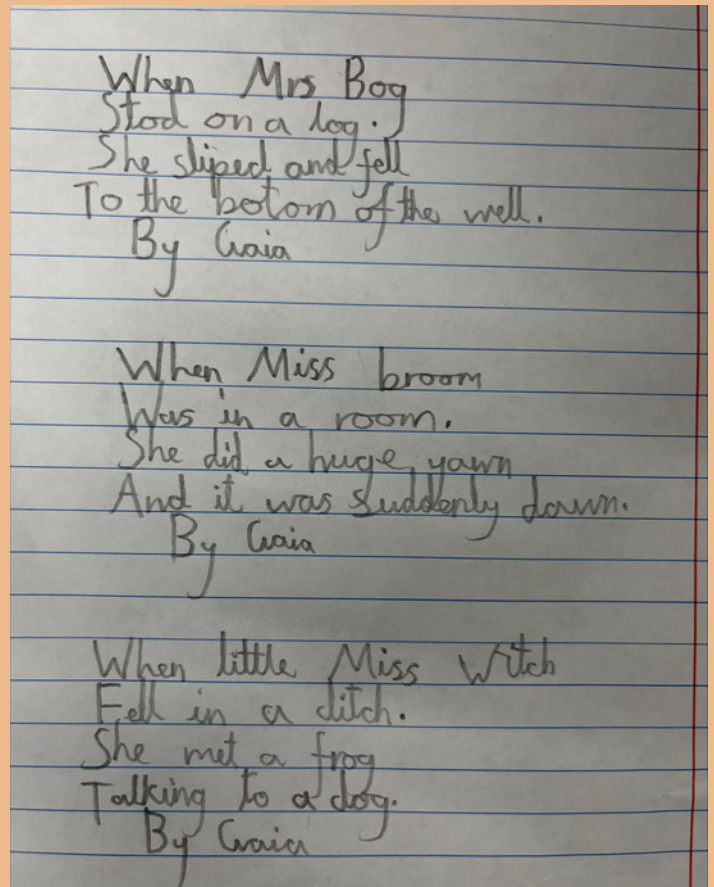 When Mrs Bog
Stod on a log.
She sliped and fell
To the botom of the well.
By Gaia
When Miss broom
Was in a room.
She did a huge yawn
And it was suddenly dawn.
By Gaia
When little Miss Witch
Fell in a ditch.
She met a frog
Talking to a dog.
By Gaia